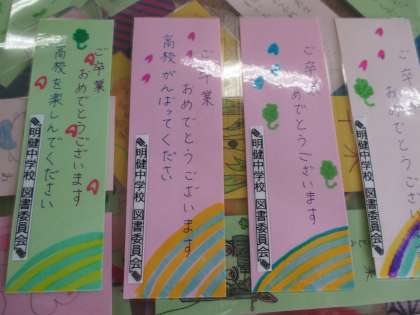 ご卒業
おめでとうございます
高校を楽しんでください
明健中学校 図書委員会
ご卒業
おめでとうございます
高校がんばってください
明健中学校 図書委員会
ご卒業
おめでとうございます
明健中学校 図書委員会
ご卒業
おめでとうございます
明健中学校 図書委員会